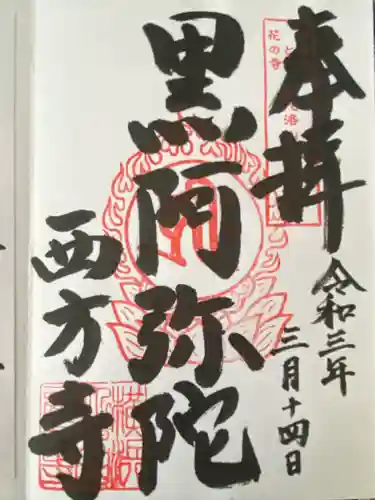 奉拝
令和三年
三月十四日
黒阿弥陀
西方寺
花の寺